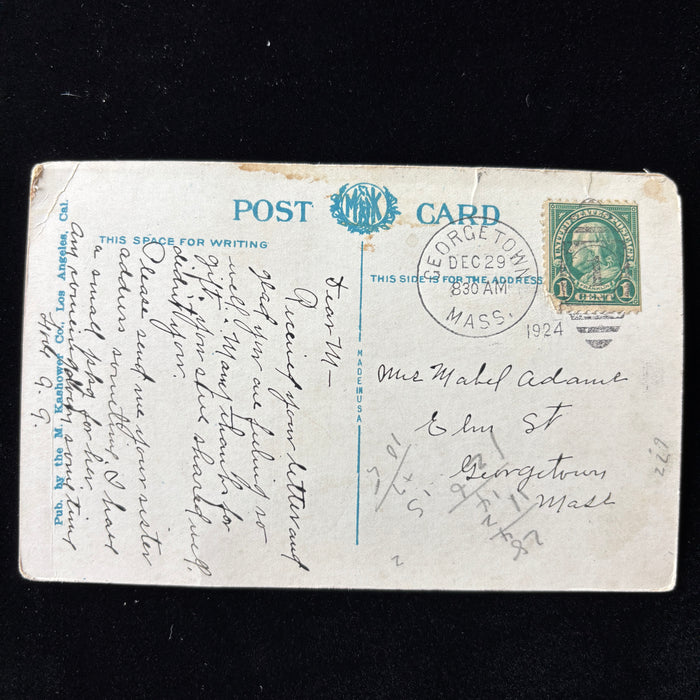 POST CARD
MK
THIS SPACE FOR WRITING
THIS SIDE IS FOR THE ADDRESS
GEORGETOWN
DEC 29
830 AM
MASS.
1924
UNITED STATES POSTAGE
1 CENT 1
Pub. by the M. Kashower Co., Los Angeles, Cal.
MADE IN USA
Dear M—
Received your letter and
glad you are feeling so
well. Many thanks for
gift, if you slue shared well.
didn't you
Please send me your sister
address sometime I have
a small pkg for her.
Am coming down sometime
Mrs Mabel Adams
Elm St
Georgetown
Mass